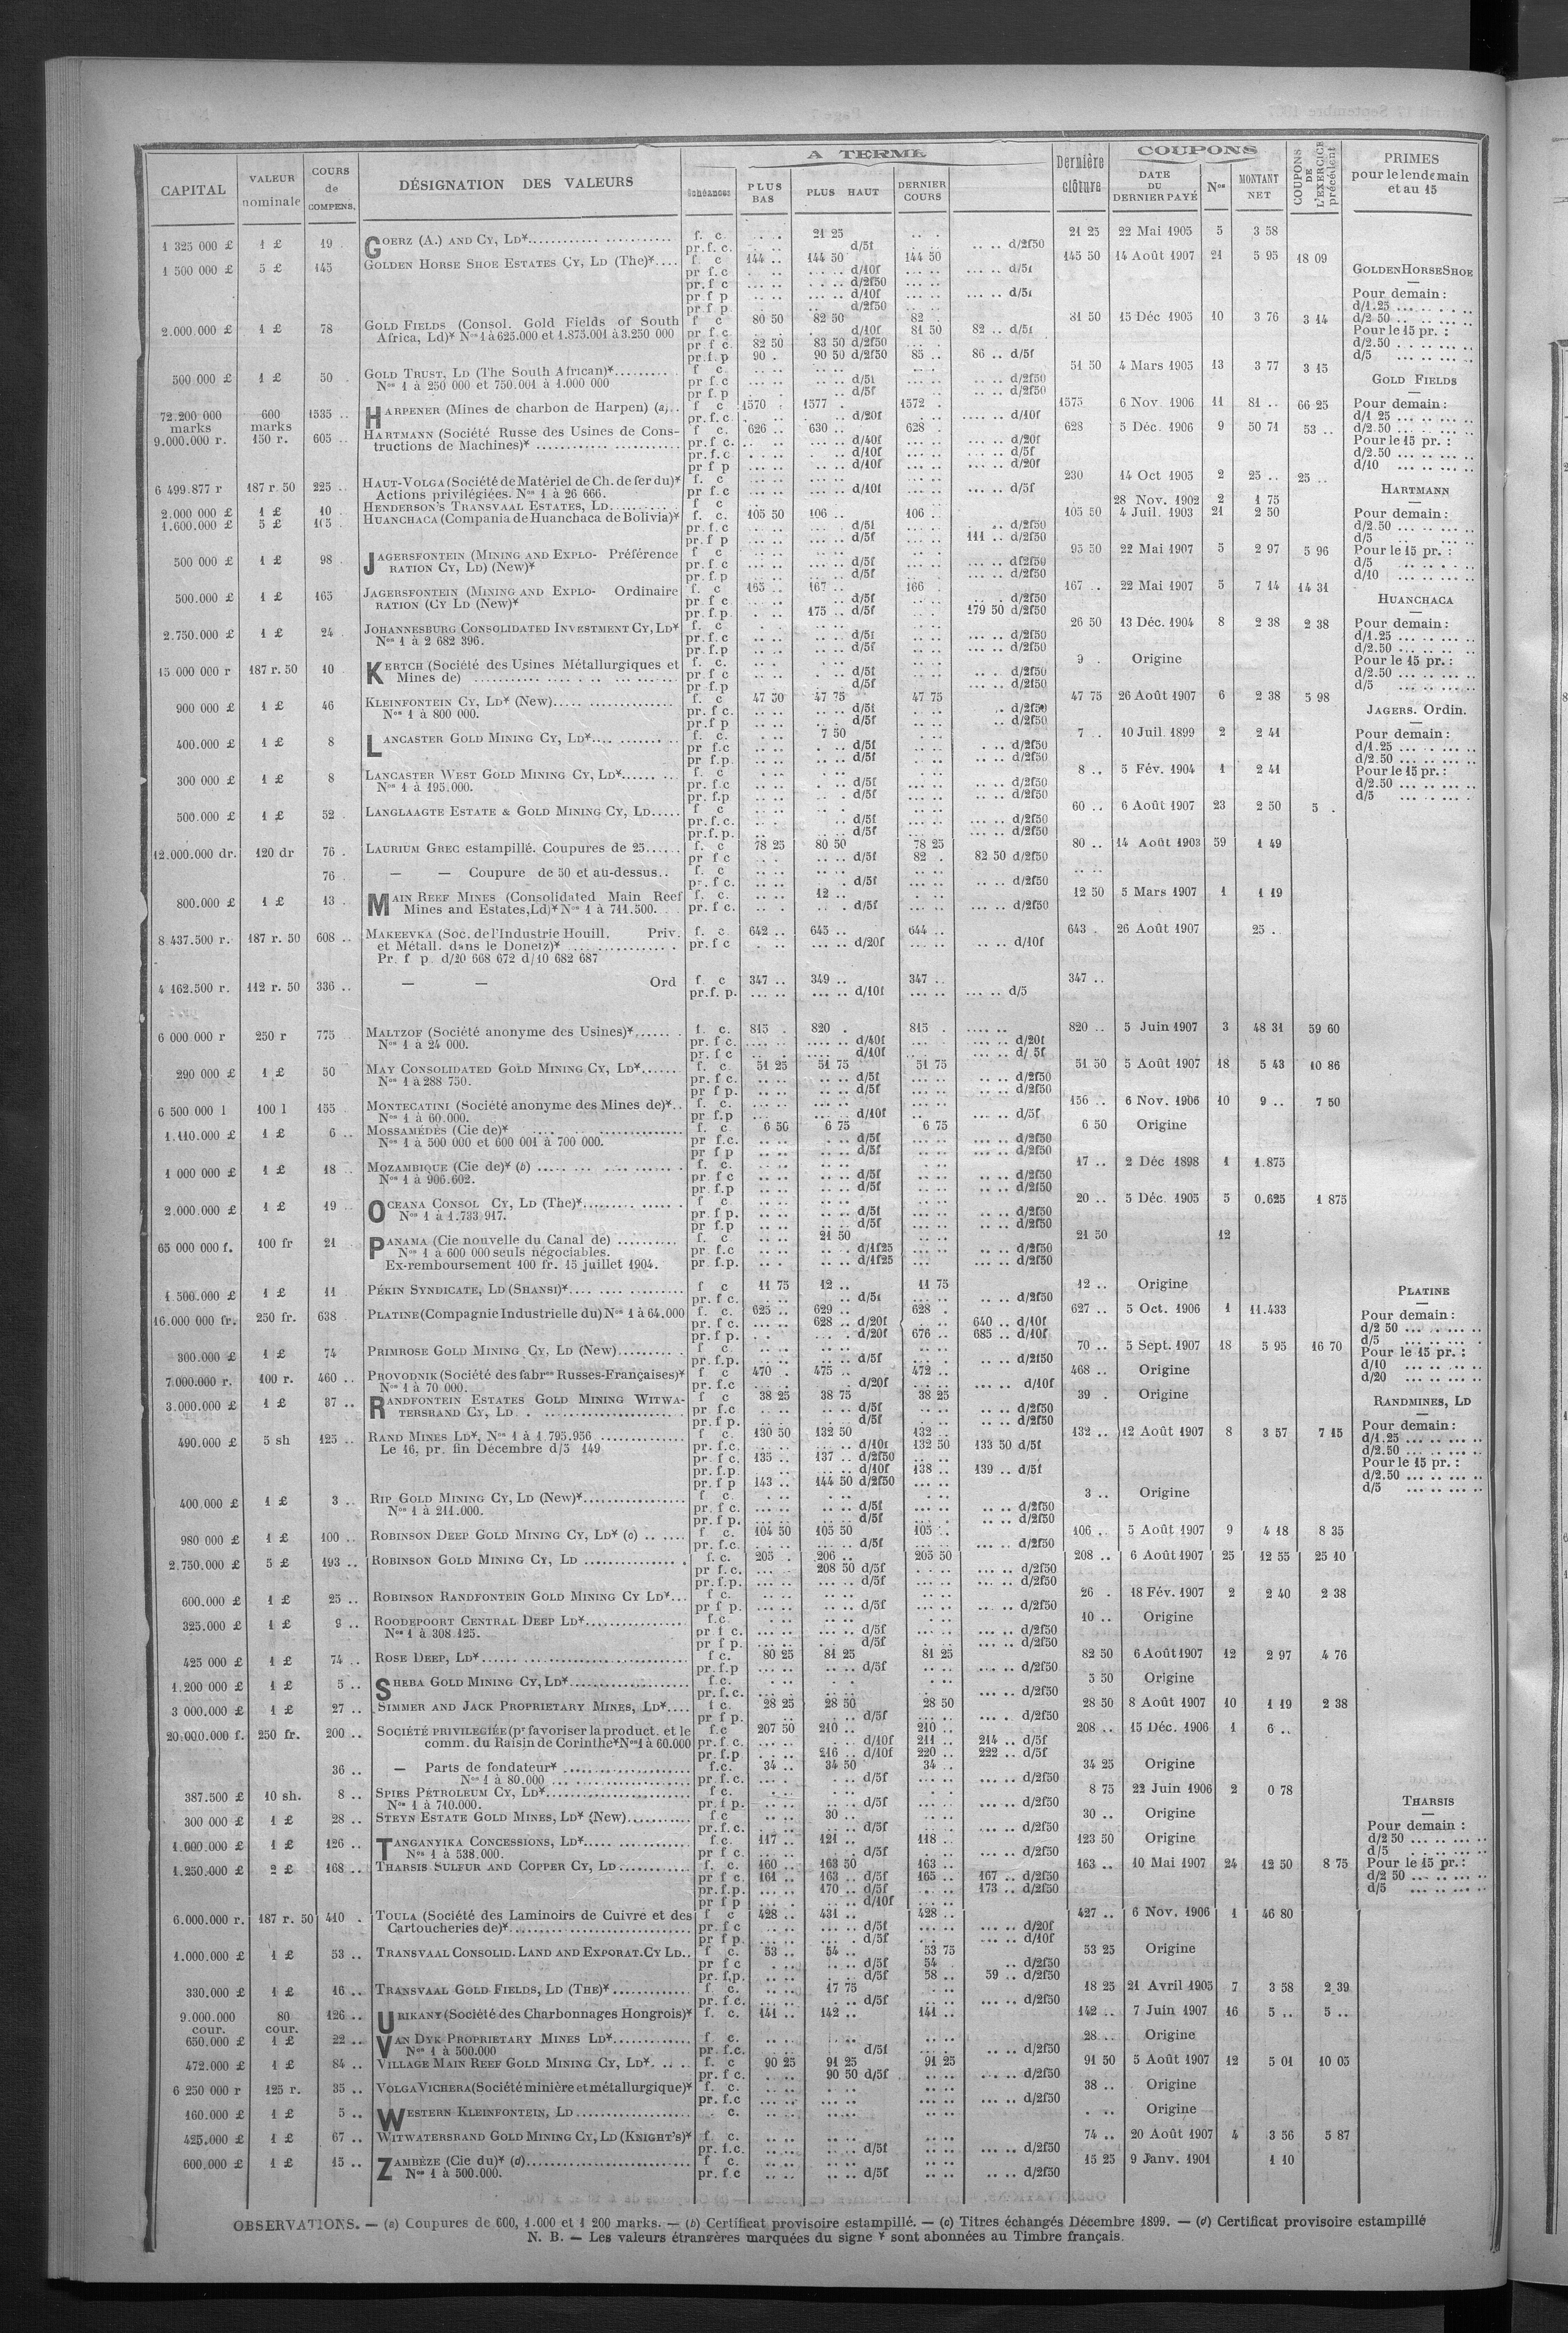 A TERME
COUPONS
CAPITAL | VALEUR nominale | COURS de COMPENS. | DÉSIGNATION DES VALEURS | Échéances | PLUS BAS | PLUS HAUT | DERNIER COURS | Dernière clôture | DATE DU DERNIER PAYÉ | Nos | MONTANT NET | COUPONS DE L'EXERCICE précédent | PRIMES pour le lendemain et au 15
1 325 000 £ | 1 £ | 19 | GOERZ (A.) AND CY, LD* | f. c. | 21 25 | 21 25 | 22 Mai 1905 | 5 | 3 58
pr. f. c. | d/5f | d/2f50
1 500 000 £ | 5 £ | 145 | GOLDEN HORSE SHOE ESTATES CY, LD (The)* | f c | 144 .. | 144 50 | 144 50 | 145 50 | 14 Août 1907 | 21 | 5 95 | 18 09
pr f. c | d/10f | d/5f
pr. f c | d/2f50
pr f p | d/10f | d/5f
pr f p. | d/2f50
2.000.000 £ | 1 £ | 78 | GOLD FIELDS (Consol. Gold Fields of South | f c | 80 50 | 82 50 | 82 .. | 81 50 | 15 Déc 1905 | 10 | 3 76 | 3 14
Africa, Ld)* Nos 1 à 625.000 et 1.875.001 à 3.250 000 | pr f. c | d/10f | 81 50 | 82 .. d/5f
pr f c | 82 50 | 83 50 d/2f50
pr.f.p | 90 . | 90 50 d/2f50 | 85 .. | 86 .. d/5f
500 000 £ | 1 £ | 50 | GOLD TRUST, LD (The South African)* | f c | 51 50 | 4 Mars 1905 | 13 | 3 77 | 3 15
Nos 1 à 250 000 et 750.001 à 1.000 000 | pr f c | d/5f | d/2f50
pr f p | d/5f | d/2f50
72.200 000 marks | 600 marks | 1535 .. | HARPENER (Mines de charbon de Harpen) (a) | f c | 1570 . | 1577 . | 1572 . | 1575 | 6 Nov. 1906 | 11 | 81 .. | 66 25
pr. f. c. | d/20f | d/10f
9.000.000 r. | 150 r. | 605 .. | HARTMANN (Société Russe des Usines de Cons- | f c. | 626 .. | 630 .. | 628 . | 628 | 5 Déc. 1906 | 9 | 50 71 | 53 ..
tructions de Machines)* | pr. f c. | d/40f | d/20f
pr. f. c | d/10f | d/5f
pr f p | d/10f | d/20f
6 499.877 r | 187 r. 50 | 225 .. | HAUT-VOLGA (Société de Matériel de Ch. de fer du)* | f. c | 230 | 14 Oct 1905 | 2 | 25 .. | 25 ..
Actions privilégiées. Nos 1 à 26 666. | pr f. c | d/10f | d/5f
2.000 000 £ | 1 £ | 10 . | HENDERSON'S TRANSVAAL ESTATES, LD | f c | 28 Nov. 1902 | 2 | 1 75
1.600.000 £ | 5 £ | 105 . | HUANCHACA (Compania de Huanchaca de Bolivia)* | f. c. | 105 50 | 106 .. | 106 .. | 105 50 | 4 Juil. 1903 | 21 | 2 50
pr. f. c | d/5f | d/2f50
pr. f p | d/5f | 111 .. d/2f50
500 000 £ | 1 £ | 98 . | JAGERSFONTEIN (MINING AND EXPLO- Préférence | f c | 95 50 | 22 Mai 1907 | 5 | 2 97 | 5 96
RATION CY, LD) (New)* | pr f c | d/5f | d/2f50
pr. f. p | d/5f | d/2f50
500.000 £ | 1 £ | 165 | JAGERSFONTEIN (MINING AND EXPLO- Ordinaire | f. c | 165 .. | 167 .. | 166 . | 167 .. | 22 Mai 1907 | 5 | 7 14 | 14 31
RATION (CY LD (New)* | pr f c | d/5f | d/2f50
pr. f. p. | 175 .. d/5f | 179 50 d/2f50
2.750.000 £ | 1 £ | 24 . | JOHANNESBURG CONSOLIDATED INVESTMENT CY, LD* | f. c | 26 50 | 13 Déc. 1904 | 8 | 2 38 | 2 38
Nos 1 à 2 682 396. | pr. f. c | d/5f | d/2f50
pr. f.p | d/5f | d/2f50
15 000 000 r | 187 r. 50 | 10 | KERTCH (Société des Usines Métallurgiques et | f. c. | 9 . | Origine
Mines de) | pr f c | d/5f | d/2f50
pr f.p | d/5f | d/2f50
900 000 £ | 1 £ | 46 | KLEINFONTEIN CY, LD* (New) | f. c | 47 50 | 47 75 | 47 75 | 47 75 | 26 Août 1907 | 6 | 2 38 | 5 98
Nos 1 à 800 000. | pr. f c. | d/5f | d/2f50
pr.f p | d/5f | d/2f50
400.000 £ | 1 £ | 8 | LANCASTER GOLD MINING CY, LD* | f. c. | 7 50 | 7 .. | 10 Juil 1899 | 2 | 2 41
pr f.c | d/5f | d/2f50
pr f.p. | d/5f | d/2f50
300 000 £ | 1 £ | 8 | LANCASTER WEST GOLD MINING CY, LD* | f. c | 8 .. | 5 Fév. 1904 | 1 | 2 41
Nos 1 à 195.000. | pr. f.c | d/5f | d/2f50
pr. f.p | d/5f | d/2f50
500.000 £ | 1 £ | 52 . | LANGLAAGTE ESTATE & GOLD MINING CY, LD | f c | 60 .. | 6 Août 1907 | 23 | 2 50 | 5 .
pr. f. c. | d/5f | d/2f50
pr.f. p. | d/5f | d/2f50
12.000.000 dr. | 120 dr | 76 . | LAURIUM GREC estampillé. Coupures de 25 | f. c | 78 25 | 80 50 | 78 25 | 80 .. | 14 Août 1903 | 59 | 1 49
pr f c | d/5f | 82 . | 82 50 d/2f50
76 | — — Coupure de 50 et au-dessus.. | f. c
pr. f c. | d/5f | d/2f50
800.000 £ | 1 £ | 13 . | MAIN REEF MINES (Consolidated Main Reef | f. c. | 12 .. | 12 50 | 5 Mars 1907 | 1 | 1 19
Mines and Estates, Ld)* Nos 1 à 711.500. | pr. f c. | d/5f | d/2f50
8 437.500 r. | 187 r. 50 | 608 .. | MAKEEVKA (Soc. de l'Industrie Houill. Priv. | f. c | 642 .. | 645 .. | 644 .. | 643 . | 26 Août 1907 | 25 .
et Métall. dans le Donetz)* | pr. f c | d/20f | d/10f
Pr. f p. d/20 668 672 d/10 682 687
4 162.500 r. | 112 r. 50 | 336 .. | — — Ord | f. c | 347 .. | 349 .. | 347 .. | 347 ..
pr.f. p. | d/10f | d/5
6 000 000 r | 250 r | 775 | MALTZOF (Société anonyme des Usines)* | f. c. | 815 . | 820 . | 815 . | 820 .. | 5 Juin 1907 | 3 | 48 31 | 59 60
Nos 1 à 24 000. | pr. f c. | d/40f | d/20f
pr. f c | d/10f | d/ 5f
290 000 £ | 1 £ | 50 | MAY CONSOLIDATED GOLD MINING CY, LD* | f. c. | 51 25 | 51 75 | 51 75 | 51 50 | 5 Août 1907 | 18 | 5 43 | 10 86
Nos 1 à 288 750. | pr. f c. | d/5f | d/2f50
pr f p. | d/2f50
6 500 000 l | 100 l | 155 | MONTECATINI (Société anonyme des Mines de)* | f. c. | 156 .. | 6 Nov. 1906 | 10 | 9 .. | 7 50
Nos 1 à 60.000. | pr f.p | d/10f | d/5f
1.110.000 £ | 1 £ | 6 .. | MOSSAMÉDÈS (Cie de)* | f. c | 6 50 | 6 75 | 6 75 | 6 50 | Origine
Nos 1 à 500 000 et 600 001 à 700 000. | pr f.c. | d/5f | d/2f50
pr f p | d/5f | d/2f50
1 000 000 £ | 1 £ | 18 | MOZAMBIQUE (Cie de)* (b) | f. c. | 17 .. | 2 Déc 1898 | 1 | 1.875
Nos 1 à 906.602. | pr f c | d/5f | d/2f50
pr. f.p | d/5f | d/2f50
2.000.000 £ | 1 £ | 19 .. | OCEANA CONSOL CY, LD (The)* | f c | 20 .. | 5 Déc. 1905 | 5 | 0.625 | 1 875
Nos 1 à 1.733 917. | pr. f p. | d/5f | d/2f50
pr f.p | d/5f | d/2f50
65 000 000 f. | 100 fr | 21 | PANAMA (Cie nouvelle du Canal de) | f. c | 21 50 | 21 50 | 12
Nos 1 à 600 000 seuls négociables. | pr f.c | d/1f25 | d/2f50
Ex-remboursement 100 fr. 15 juillet 1904. | pr. f.p. | d/1f25 | d/2f50
1.500.000 £ | 1 £ | 11 | PÉKIN SYNDICATE, LD (SHANSI)* | f c | 11 75 | 12 .. | 11 75 | 12 .. | Origine
pr. f c. | d/5f | d/2f50
16.000 000 fr. | 250 fr. | 638 | PLATINE (Compagnie Industrielle du) Nos 1 à 64.000 | f. c. | 625 .. | 629 .. | 628 . | 627 .. | 5 Oct. 1906 | 1 | 11.433
pr. f c. | 628 .. d/20f | 640 .. d/10f
pr. f p. | d/20f | 676 .. | 685 .. d/10f
300.000 £ | 1 £ | 74 | PRIMROSE GOLD MINING CY, LD (New) | f c. | 70 .. | 5 Sept. 1907 | 18 | 5 95 | 16 70
pr. f.p. | d/5f | d/2f50
7.000.000 r. | 100 r. | 460 .. | PROVODNIK (Société des fabres Russes-Françaises)* | f c | 470 . | 475 .. | 472 .. | 468 .. | Origine
Nos 1 à 70 000. | pr. f.c | d/20f | d/10f
3.000.000 £ | 1 £ | 37 .. | RANDFONTEIN ESTATES GOLD MINING WITWA- | f c | 38 25 | 38 75 | 38 25 | 39 . | Origine
TERSRAND CY, LD. | pr f.c | d/5f | d/2f50
pr. f p. | d/5f | d/2f50
490.000 £ | 5 sh | 125 .. | RAND MINES LD*, Nos 1 à 1.795.956 | f c. | 130 50 | 132 50 | 132 .. | 132 .. | 12 Août 1907 | 8 | 3 57 | 7 15
Le 16, pr. fin Décembre d/5 149 | pr. f.c. | d/10f | 132 50 | 133 50 d/5f
pr. f c. | 135 .. | 137 .. d/2f50
pr. f.p. | d/10f | 138 .. | 139 .. d/5f
pr f p | 143 .. | 144 50 d/2f50
400.000 £ | 1 £ | 3 .. | RIP GOLD MINING CY, LD (New)* | f c. | 3 .. | Origine
Nos 1 à 211.000. | pr. f c. | d/5f | d/2f50
pr. f p. | d/5f | d/2f50
980 000 £ | 1 £ | 100 .. | ROBINSON DEEP GOLD MINING CY, LD* (c) | f c. | 104 50 | 105 50 | 105 .. | 106 .. | 5 Août 1907 | 9 | 4 18 | 8 35
pr. f.c. | d/5f | d/2f50
2.750.000 £ | 5 £ | 193 .. | ROBINSON GOLD MINING CY, LD | f. c. | 205 . | 206 .. | 205 50 | 208 .. | 6 Août 1907 | 25 | 12 55 | 25 10
pr f. c. | 208 50 d/5f | d/2f50
pr. f.p. | d/5f | d/2f50
600.000 £ | 1 £ | 25 .. | ROBINSON RANDFONTEIN GOLD MINING CY LD* | f c. | 26 . | 18 Fév. 1907 | 2 | 2 40 | 2 38
pr f p. | d/5f | d/2f50
325.000 £ | 1 £ | 9 .. | ROODEPOORT CENTRAL DEEP LD* | f.c. | 10 .. | Origine
Nos 1 à 308.125. | pr f c. | d/5f | d/2f50
pr f p. | d/5f | d/2f50
425 000 £ | 1 £ | 74 .. | ROSE DEEP, LD* | f c. | 80 25 | 81 25 | 81 25 | 82 50 | 6 Août 1907 | 12 | 2 97 | 4 76
pr. f.p | d/5f | d/2f50
1.200 000 £ | 1 £ | 5 .. | SHEBA GOLD MINING CY, LD* | f.c. | 5 50 | Origine
pr. f. c. | d/2f50
3 000.000 £ | 1 £ | 27 .. | SIMMER AND JACK PROPRIETARY MINES, LD* | f c. | 28 25 | 28 50 | 28 50 | 28 50 | 8 Août 1907 | 10 | 1 19 | 2 38
pr f p. | d/5f | d/2f50
20.000.000 f. | 250 fr. | 200 .. | SOCIÉTÉ PRIVILEGIÉE (pr favoriser la product. et le | f.c | 207 50 | 210 .. | 210 .. | 208 .. | 15 Déc. 1906 | 1 | 6 ..
comm. du Raisin de Corinthe* Nos 1 à 60.000 | pr. f. c. | d/10f | 211 .. | 214 .. d/5f
pr. f.p | 216 .. d/10f | 220 .. | 222 .. d/5f
36 .. | — Parts de fondateur* | f.c. | 34 .. | 34 50 | 34 .. | 34 25 | Origine
Nos 1 à 80.000 | pr. f. c. | d/5f | d/2f50
387.500 £ | 10 sh. | 8 .. | SPIES PÉTROLEUM CY, LD* | f c. | 8 75 | 22 Juin 1906 | 2 | 0 78
Nos 1 à 710.000. | pr. f p. | d/5f | d/2f50
300 000 £ | 1 £ | 28 .. | STEYN ESTATE GOLD MINES, LD* (New) | f c | 30 .. | 30 .. | Origine
pr. f. c. | d/5f | d/2f50
1.000.000 £ | 1 £ | 126 .. | TANGANYIKA CONCESSIONS, LD* | f.c. | 117 .. | 121 .. | 118 .. | 123 50 | Origine
Nos 1 à 538.000. | pr f c. | d/5f | d/2f50
1.250.000 £ | 2 £ | 168 .. | THARSIS SULFUR AND COPPER CY, LD | f. c. | 160 .. | 163 50 | 163 .. | 163 .. | 10 Mai 1907 | 24 | 12 50 | 8 75
pr f c. | 161 .. | 163 .. d/5f | 165 .. | 167 .. d/2f50
pr. f.p. | 170 .. d/5f | 173 .. d/2f50
pr f p | d/10f
6.000.000 r. | 187 r. 50 | 410 . | TOULA (Société des Laminoirs de Cuivre et des | f c | 428 .. | 431 .. | 428 .. | 427 .. | 6 Nov. 1906 | 1 | 46 80
Cartoucheries de)* | pr. f c | d/5f | d/20f
pr f p. | d/5f | d/10f
1.000.000 £ | 1 £ | 53 .. | TRANSVAAL CONSOLID. LAND AND EXPORAT. CY LD.. | f c. | 53 .. | 54 .. | 53 75 | 53 25 | Origine
pr f c | d/5f | 54 . | d/2f50
pr. f.p. | d/5f | 58 .. | 59 .. d/2f50
330.000 £ | 1 £ | 16 .. | TRANSVAAL GOLD FIELDS, LD (THE)* | f. c. | 17 75 | 18 25 | 21 Avril 1905 | 7 | 3 58 | 2 39
pr. f c. | d/5f | d/2f50
9.000.000 cour. | 80 cour. | 126 .. | URIKANY (Société des Charbonnages Hongrois)* | f. c. | 141 .. | 142 .. | 141 .. | 142 .. | 7 Juin 1907 | 16 | 5 .. | 5 ..
650.000 £ | 1 £ | 22 .. | VAN DYK PROPRIETARY MINES LD* | f c. | 28 .. | Origine
Nos 1 à 500.000 | pr. f.c. | d/5f | d/2f50
472.000 £ | 1 £ | 84 .. | VILLAGE MAIN REEF GOLD MINING CY, LD* | f. c | 90 25 | 91 25 | 91 25 | 91 50 | 5 Août 1907 | 12 | 5 01 | 10 05
pr. f c. | 90 50 d/5f | d/2f50
6 250 000 r | 125 r. | 35 .. | VOLGA VICHERA (Société minière et métallurgique)* | f. c. | 38 .. | Origine
pr. f.c | d/2f50
160.000 £ | 1 £ | 5 .. | WESTERN KLEINFONTEIN, LD | c. | Origine
425.000 £ | 1 £ | 67 .. | WITWATERSRAND GOLD MINING CY, LD (KNIGHT'S)* | f. c. | 74 .. | 20 Août 1907 | 4 | 3 56 | 5 87
pr. f.c. | d/5f | d/2f50
600.000 £ | 1 £ | 15 .. | ZAMBÈZE (Cie du)* (d) | f c. | 15 25 | 9 Janv. 1901 | 1 10
Nos 1 à 500.000. | pr. f c | d/5f | d/2f50
GOLDEN HORSE SHOE
Pour demain :
d/1.25
d/2 50
Pour le 15 pr. :
d/2.50
d/5
GOLD FIELDS
Pour demain :
d/1 25
d/2.50
Pour le 15 pr. :
d/2.50
d/10
HARTMANN
Pour demain :
d/2.50
d/5
Pour le 15 pr. :
d/5
d/10
HUANCHACA
Pour demain :
d/1.25
d/2.50
Pour le 15 pr. :
d/2.50
d/5
JAGERS. Ordin.
Pour demain :
d/1.25
d/2.50
Pour le 15 pr. :
d/2.50
d/5
PLATINE
Pour demain :
d/2 50
d/5
Pour le 15 pr. :
d/10
d/20
RANDMINES, LD
Pour demain :
d/1.25
d/2.50
Pour le 15 pr. :
d/2.50
d/5
THARSIS
Pour demain :
d/2 50
d/5
Pour le 15 pr. :
d/2 50
d/5
OBSERVATIONS. — (a) Coupures de 600, 1.000 et 1 200 marks. — (b) Certificat provisoire estampillé. — (c) Titres échangés Décembre 1899. — (d) Certificat provisoire estampillé
N. B. — Les valeurs étrangères marquées du signe * sont abonnées au Timbre français.